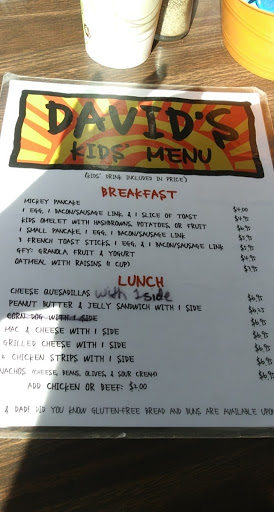 DAVID'S
KIDS' MENU
(KIDS' DRINK INCLUDED IN PRICE)
BREAKFAST
MICKEY PANCAKE $4.00
1 EGG, 1 BACON/SAUSAGE LINK, & 1 SLICE OF TOAST
KIDS OMELET WITH HASHBROWNS, POTATOES, OR FRUIT
1 SMALL PANCAKE, 1 EGG, 1 BACON/SAUSAGE LINK
3 FRENCH TOAST STICKS, 1 EGG, & 1 BACON/SAUSAGE LINK
GFY: GRANOLA FRUIT & YOGURT
OATMEAL WITH RAISINS (1 CUP)
LUNCH
CHEESE QUESADILLAS with 1 side $6.95
PEANUT BUTTER & JELLY SANDWICH WITH 1 SIDE $6.25
CORN DOG WITH 1 SIDE $6.95
MAC & CHEESE WITH 1 SIDE $6.95
GRILLED CHEESE WITH 1 SIDE $6.95
2 CHICKEN STRIPS WITH 1 SIDE $6.95
NACHOS (CHEESE, BEANS, OLIVES, & SOUR CREAM) $6.95
ADD CHICKEN OR BEEF: $2.00
& DAD! DID YOU KNOW GLUTEN-FREE BREAD AND BUNS ARE AVAILABLE UPON